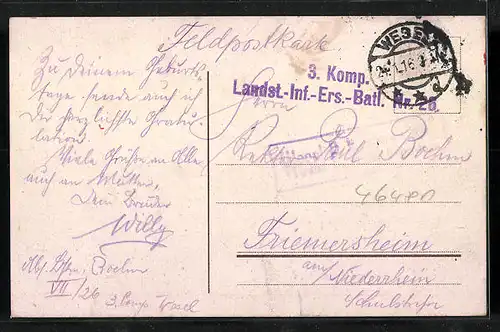 Feldpostkarte
WESEL
24.1.16.
3. Komp.
Landst.-Inf.-Ers.-Batl. Nr. 26.
Zu Deinem Geburts-
tage sende auch ich
Dir herzlichste Gratu-
lation.
Viele Grüße an Alle
auch an Mutter.
Dein Bruder
Willy
Abs. Boehm
VII/26
3. Comp. Wesel
Herrn
Rektor Paul Boehm
46480
Friemersheim
am Niederrhein
Schulstraße